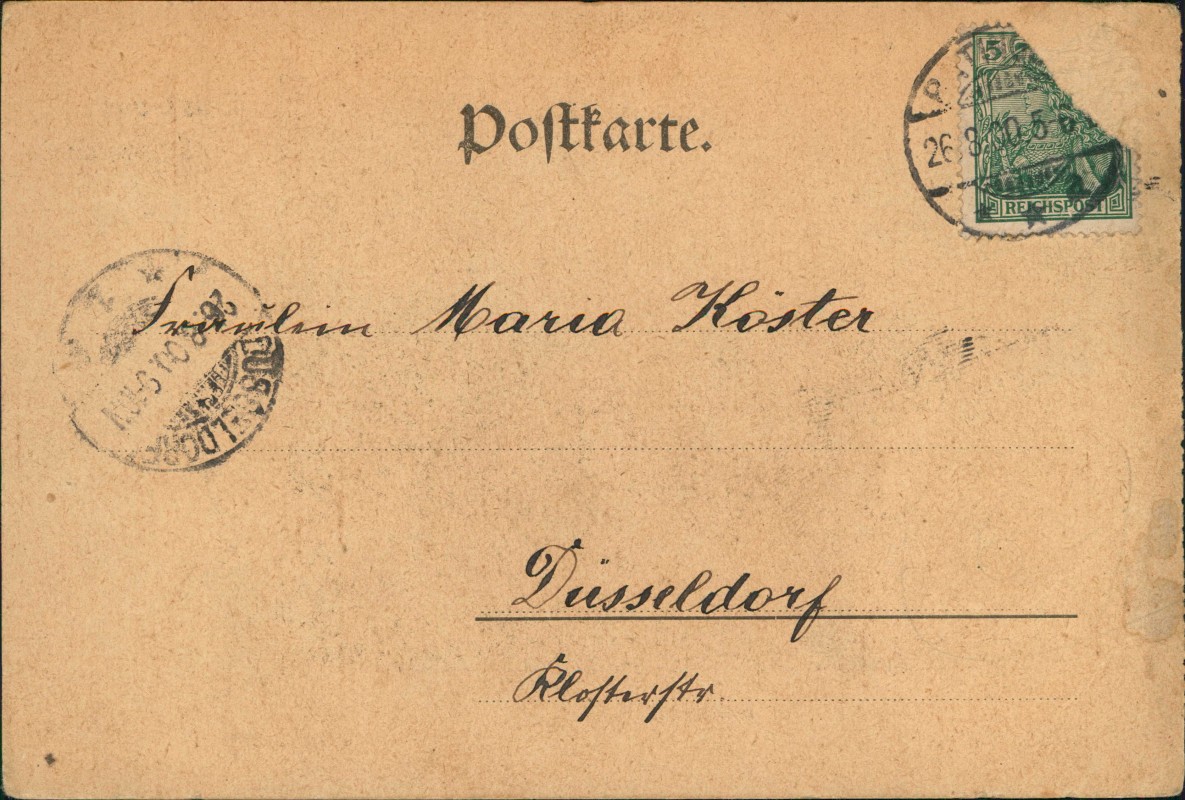 Postkarte.
5
26.8.00.5
REICHSPOST
Fräulein Maria Köster
DÜSSELDORF
26.8.00.
Düsseldorf
Klosterstr.